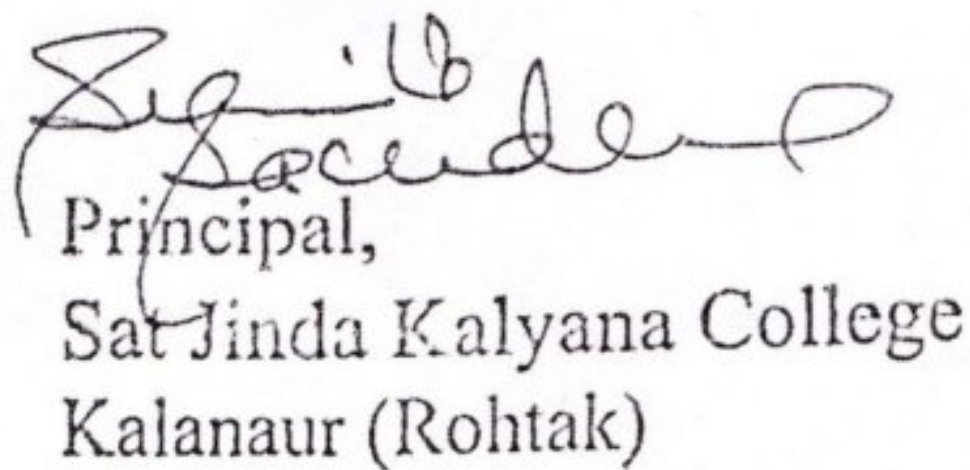 Principal,
Sat Jinda Kalyana College
Kalanaur (Rohtak)